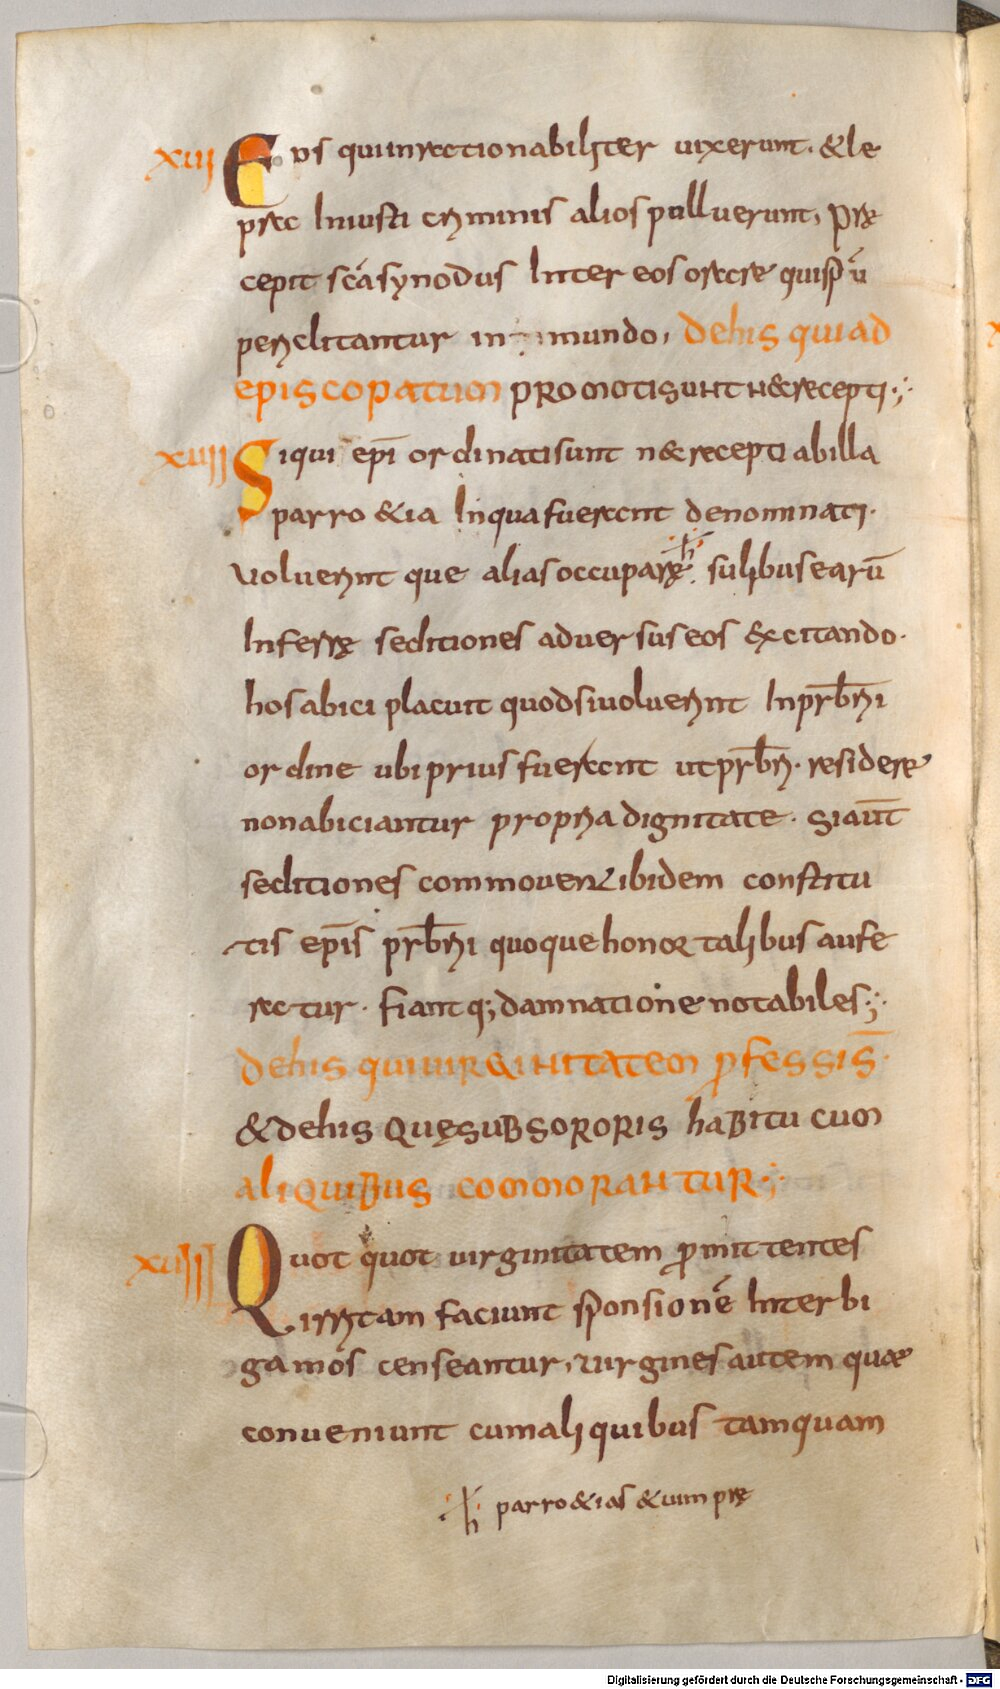 XVII Eos qui inrationabiliter uixerunt. & le
prae Iniusti criminis alios pulluerunt, prę
cepit scā synodus Inter eos orare qui spū
periclitantur in mundo, De his qui ad
episcopatum promoti sunt n& recepti.
XVIII Si qui epī ordinati sunt n& recepti ab illa
parro&ia In qua fuerant denominati.
Voluerint que alias occuparę h sulibus earū
Inferrę seditiones aduersus eos excitando.
hos abici placuit quod si uoluerint In prb̄ri
ordine ubi prius fuerant ut prb̄ri. residere
non abiciantur propria dignitate. Si aūt
seditiones commouerint ibidem constitu
tis ep̄is prb̄ri quoque honor talibus aufe
ratur. fiantq; damnatione notabiles;
De his qui uirginitatem professi s̄.
& de his quę sub sororis habitu cum
aliquibus commorantur;
XVIIII Quot quot uirginitatem promittentes
irritam faciunt sponsionē Inter bi
gamos censeantur, uirgines autem quae
conueniunt cum aliquibus tamquam
h parro&ias & uim prę
Digitalisierung gefördert durch die Deutsche Forschungsgemeinschaft - DFG